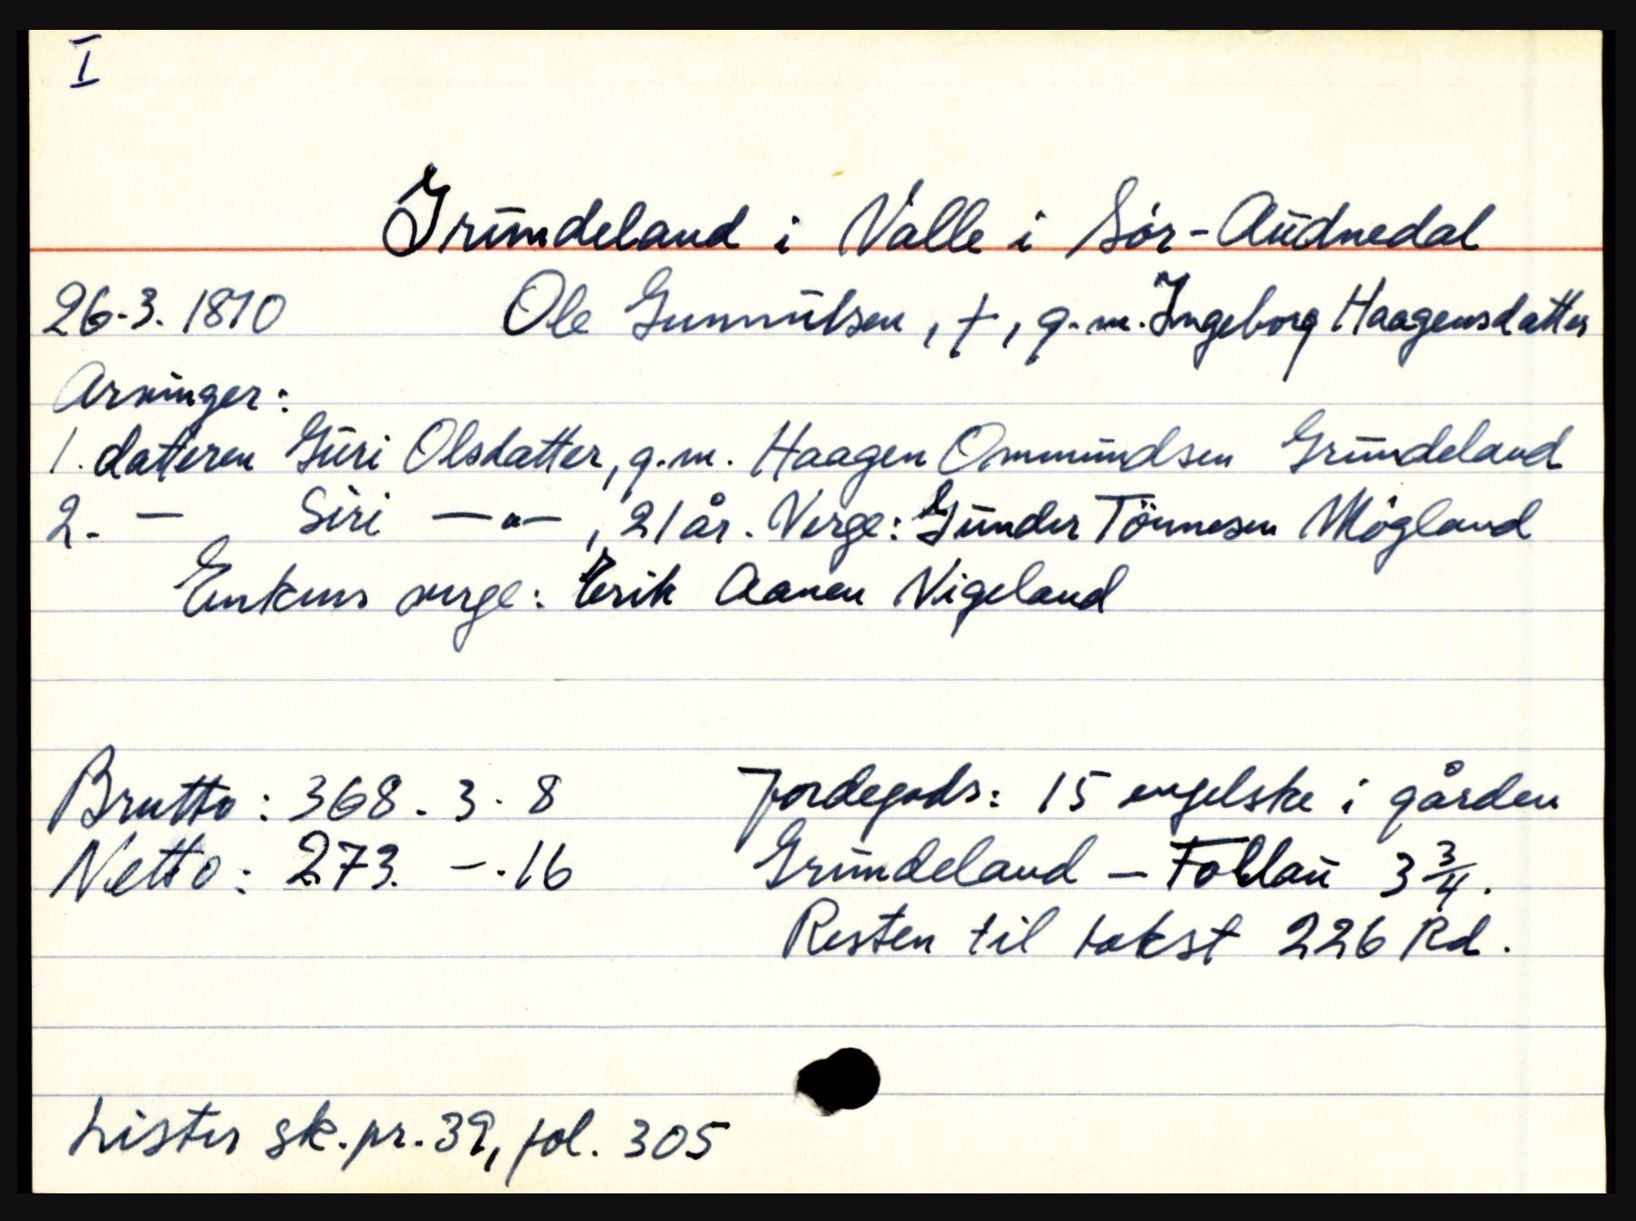 I
Grundeland i Valle i Sör-Audnedal
26.3.1810 Ole Gunnulsen, †, g.m. Ingeborg Haagensdatter
Arvinger:
1. datteren Guri Olsdatter, g.m. Haagen Ommundsen Grundeland
2. — Siri —"—, 21 år. Verge: Gunder Tönnesen Mögland
Enkens verge: Erik Aanen Vigeland
Brutto: 368. 3. 8 Jordegods: 15 engelske i gården
Netto: 273. -. 16 Grundeland - Follau 3 3/4.
Resten til takst 226 Rd.
Lister sk.pr. 39, fol. 305